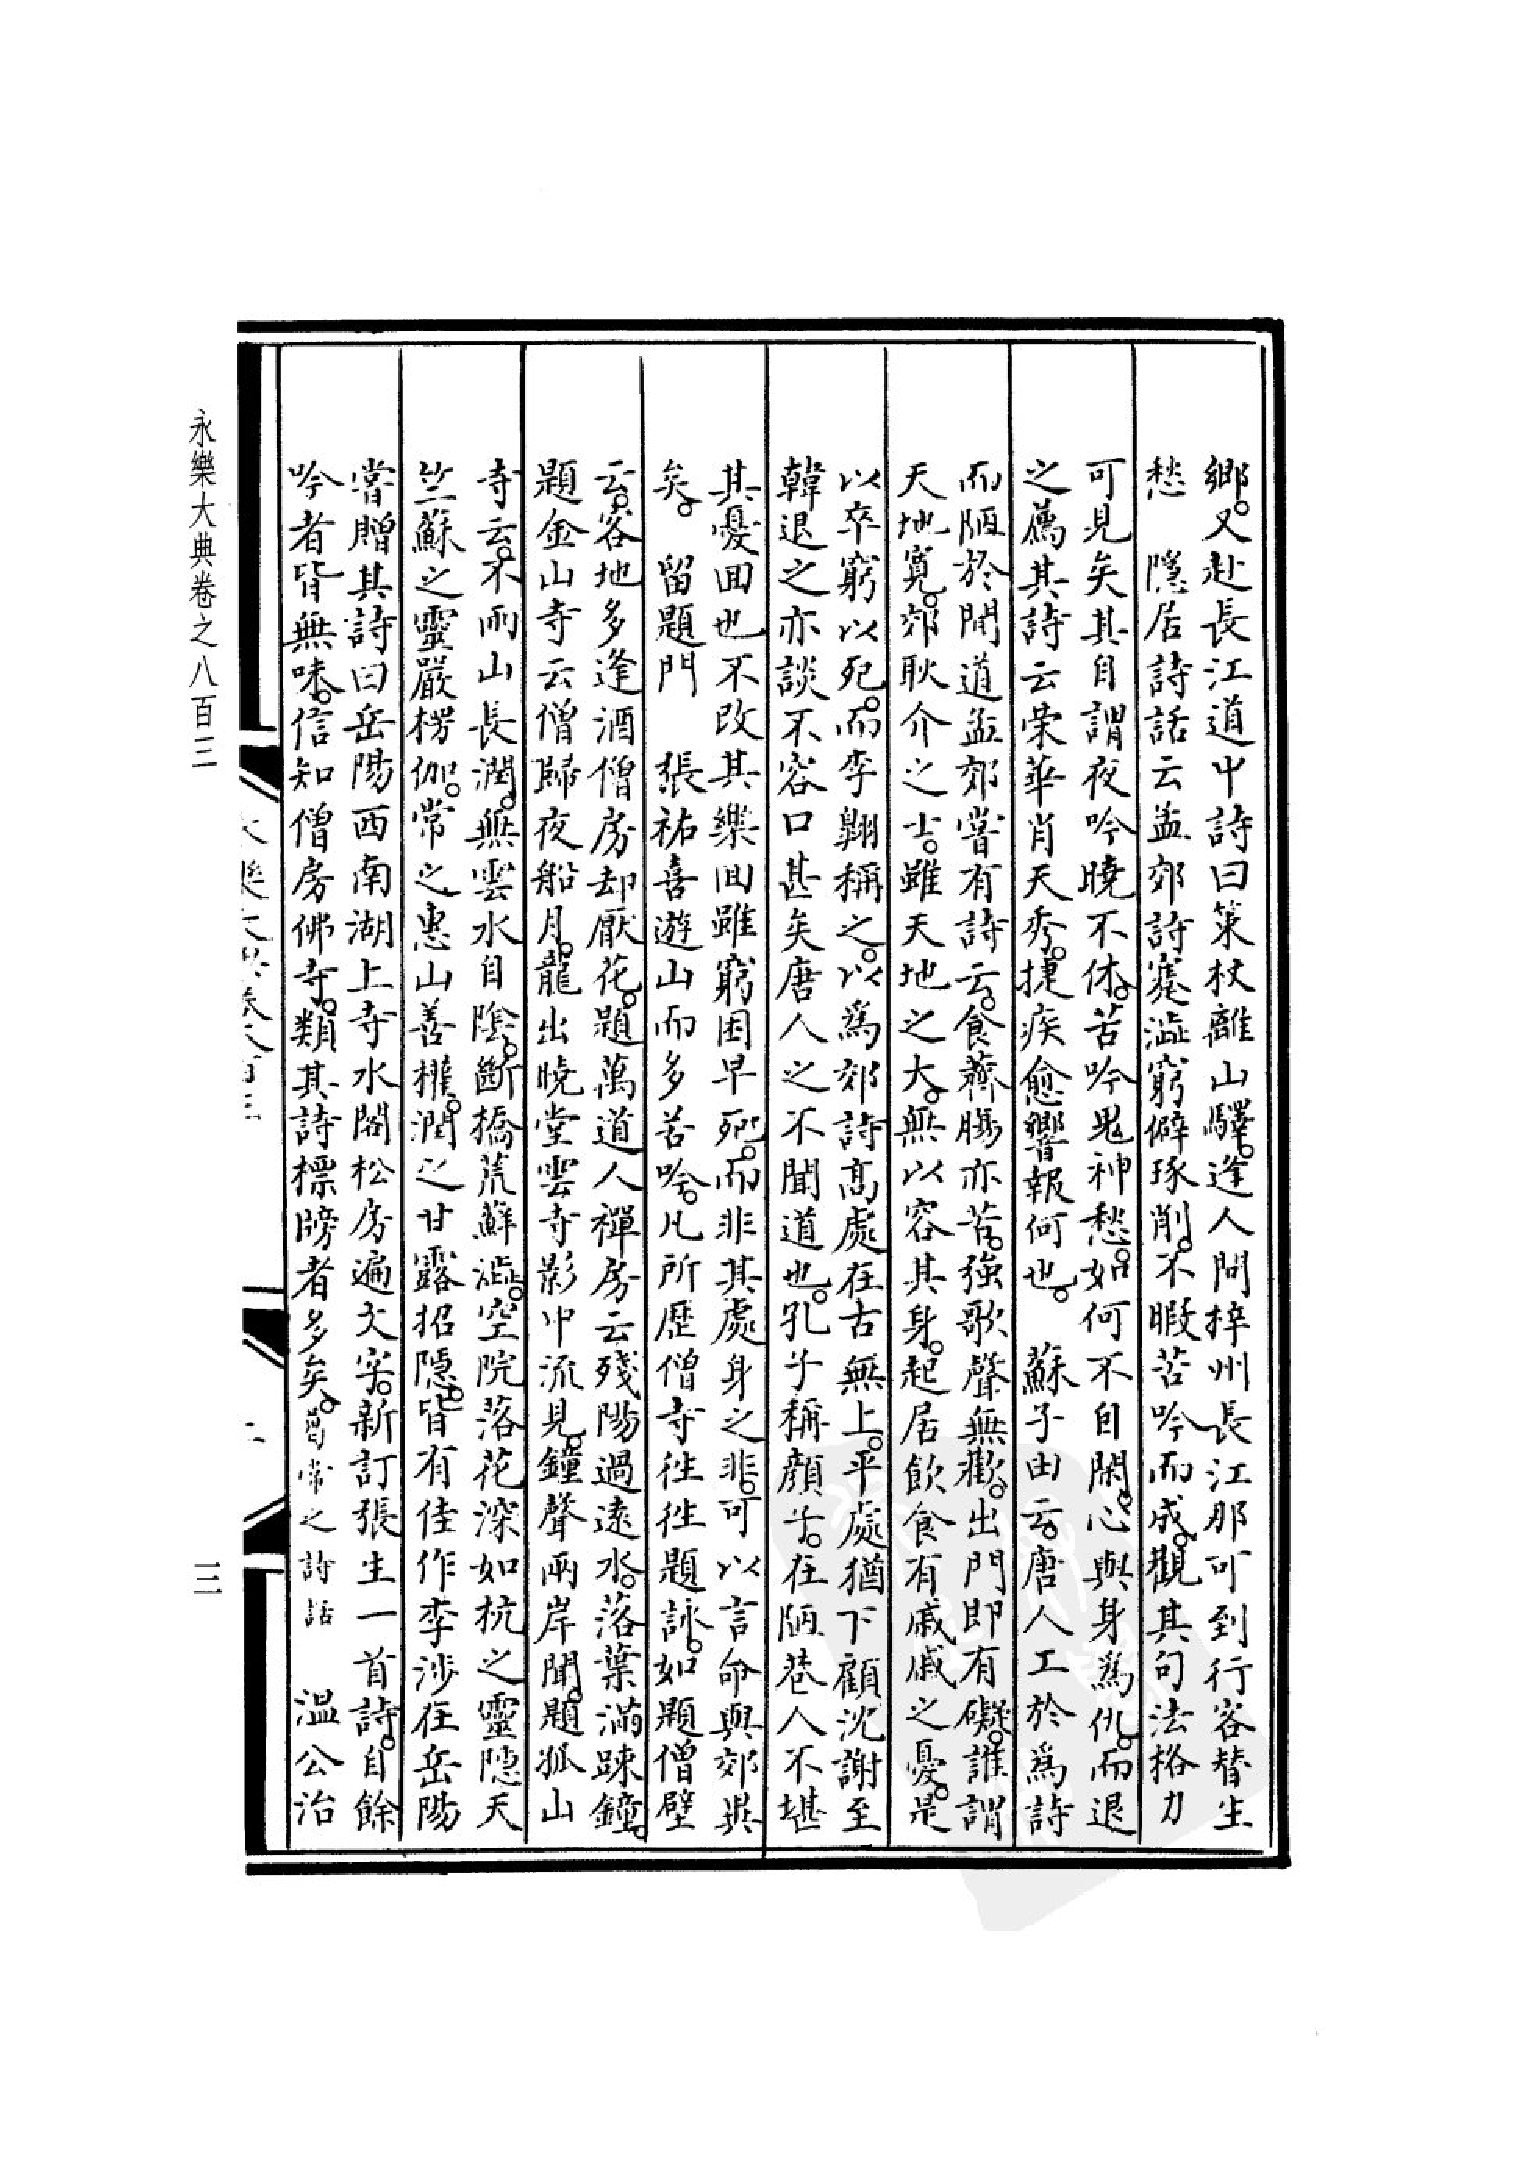 鄉。又赴長江道中詩曰策杖離山驛。逢人問梓州長江那可到行客替生
愁　隱居詩話云孟郊詩蹇澁窮僻琢削。不暇苦吟而成。觀其句法格力
可見矣其自謂夜吟曉不休。苦吟鬼神愁。如何不自閑。心與身爲仇。而退
之薦其詩云榮華肖天秀。捷疾愈響報何也。　蘇子由云。唐人工於爲詩
而陋於聞道孟郊嘗有詩云。食薺腸亦苦。強歌聲無歡。出門即有礙。誰謂
天地寬。郊耿介之士。雖天地之大。無以容其身。起居飲食有戚戚之憂。是
以卒窮以死。而李翺稱之。以爲郊詩高處在古無上。平處猶下顧沈謝至
韓退之亦談不容口甚矣唐人之不聞道也。孔子稱顏子。在陋巷人不堪
其憂囬也不改其樂囬雖窮困早死。而非其處身之非。可以言命與郊異
矣。　留題門　張祐喜遊山而多苦吟。凡所歷僧寺徃徃題詠。如題僧壁
云。客地多逢酒僧房却厭花。題萬道人禪房云殘陽過遠水。落葉滿踈鐘。
題金山寺云僧歸夜船月。龍出曉堂雲寺影中流見。鐘聲兩岸聞。題孤山
寺云。不雨山長潤。無雲水自陰。斷橋荒蘚澁。空院落花深如杭之靈隱天
竺蘇之靈嚴楞伽。常之惠山善權。潤之甘露招隱。皆有佳作李涉在岳陽
嘗贈其詩曰岳陽西南湖上寺水閣松房遍文字。新訂張生一首詩。自餘
吟者皆無味。信知僧房佛寺。類其詩標牓者多矣。葛常之詩話　溫公治
永樂大典卷之八百三
三